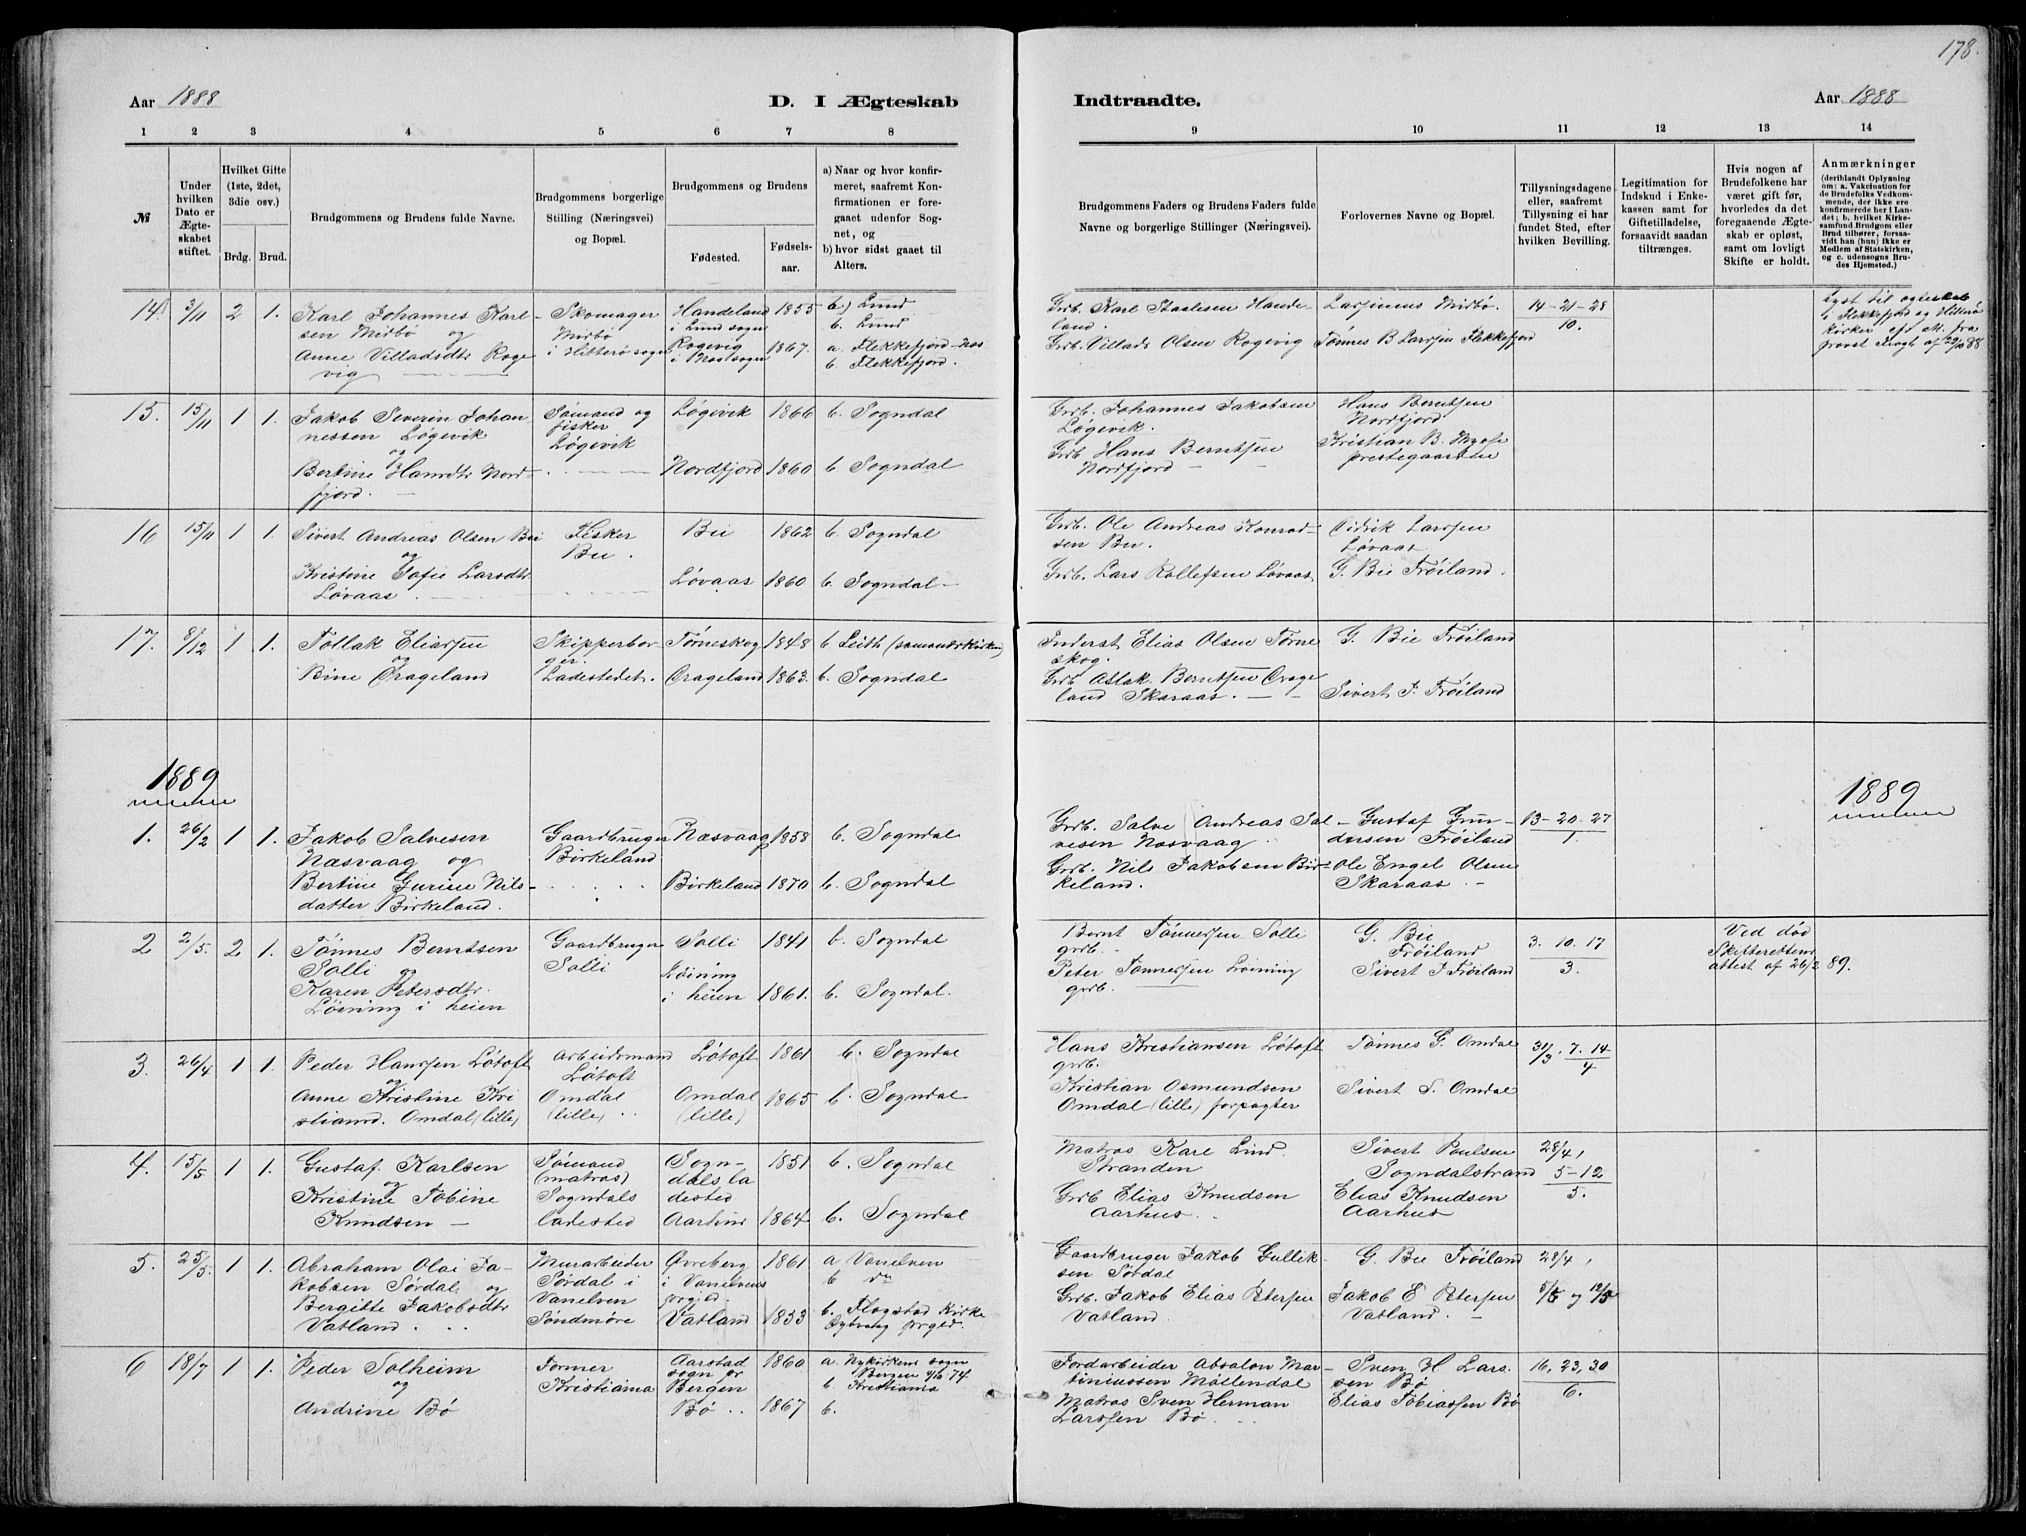 178.
Aar 1888
D. I Ægteskab
Indtraadte.
Aar 1888
1 2 3 4 5 6 7 8 9 10 11 12 13 14
№
Under hvilken Dato er Ægteskabet stiftet.
Hvilket Gifte (1ste, 2det, 3die osv.)
Brdg. Brud.
Brudgommens og Brudens fulde Navne.
Brudgommens borgerlige Stilling (Næringsvei) og Bopæl.
Brudgommens og Brudens
Fødested.
Fødselsaar.
a) Naar og hvor konfirmeret, saafremt Konfirmationen er foregaaet udenfor Sognet, og
b) hvor sidst gaaet til Alters.
Brudgommens Faders og Brudens Faders fulde Navne og borgerlige Stillinger (Næringsvei).
Forlovernes Navne og Bopæl.
Tillysningsdagene eller, saafremt Tillysning ei har fundet Sted, efter hvilken Bevilling.
Legitimation for Indskud i Enkekassen samt for Giftetilladelse, forsaavidt saadan tiltrænges.
Hvis nogen af Brudefolkene har været gift før, hvorledes da det foregaaende Ægteskab er opløst, samt om lovligt Skifte er holdt.
Anmærkninger
(deriblandt Oplysning om: a. Vakcination for de Brudefolks Vedkommende, der ikke ere konfirmerede her i Landet; b. hvilket Kirkesamfund Brudgom eller Brud tilhører, forsaavidt han (hun) ikke er Medlem af Statskirken, og c. udensogns Brudes Hjemsted.)
14 3/11 2 1. Karl Johannes Karlsen Midbø og
Anne Villadsdtr Rogevig
Skomager Midbø i Hitterø sogn
Handeland i Lund sogn 1855 b.) Lund
b. Lund
Rogevig i Nes sogn 1867. a. Flekkefjord-Nes
b. Flekkefjord.
Grb. Karl Staalesen Handeland.
Grb. Villads Olsen Rogevig
Larsinius Midbø.
Tønnes B Larsen Flekkefjord
14-21-28
10.
Lyst til ægteskab i Flekkefjord og Hitterø kirker
15. 15/11 1 1. Jakob Severin Johannessen Løgevik
og
Bertine Hansdtr Nordfjord.
Sømand og fisker Løgevik
Løgevik 1866 b. Sogndal
Nordfjord 1860 b Sogndal
Grb. Johannes Jakobsen Løgevik.
Grb Hans Berntsen Nordfjord
Hans Berntsen Nordfjord
Kristian B. Mysse prestegaarden
16 15/11 1 1. Sivert Andreas Olsen Bu
og
Kristine Sofie Larsdtr Løvaas
Fisker Bu.
Bu 1862 b Sogndal
Løvaas 1860 b. Sogndal
Grb. Ole Andreas Konradsen Bu.
Grb. Lars Rollefsen Løvaas
Didrik Larsen Løvaas
G. Bie Frøiland.
17. 8/12 1 1. Tollak Eliassen
og
Bine Ørageland
Skipperborger. Ladestedet.
Tørneskog 1848 b Leith (sømandskirken)
Ørageland 1863. b. Sogndal
Inderst Elias Olsen Tørneskog.
Grb Aslak Berntsen Ørageland Skaraas.
G. Bie Frøiland
Sivert J. Frøiland
1889
1889
1. 26/2 1 1. Jakob Salvesen Næsvaag og
Bertine Gurine Nilsdatter Birkeland.
Gaardbruger Birkeland
Næsvaag 1858 b. Sogndal
Birkeland 1870 b. Sogndal
Grb. Salve Andreas Salvesen Nesvaag
Grb. Nils Jakobsen Birkeland.
Gustaf Gundersen Frøiland
Ole Engel Olsen Skaraas.
13-20-27
1.
2 2/5. 2 1. Tønnes Berntsen Solli
og
Karen Petersdtr. Løining i heien
Gaardbruger Solli
Solli 1841 b. Sogndal
Løining i heien 1861. b. Sogndal.
Bernt Tønnessen Solli grb.
Peter Tønnessen Løining grb.
G. Bie Frøiland
Sivert J Frøiland
3. 10. 17
3.
Ved død
Skifterettens attest af 26/2 89.
3. 26/4 1 1. Peder Hanssen Løtoft
og
Anne Kristine Kristiansd. Omdal (lille)
Arbeidsmand Løtoft
Omdal (lille)
Løtoft 1861 b. Sogndal
Omdal (lille) 1865 b. Sogndal
Hans Kristiansen Løtoft grb.
Kristian Osmundsen Omdal (lille) forpagter
Tønnes G. Omdal
Sivert S. Omdal
31/3. 7. 14
4
4. 15/5 1 1. Gustaf Karlsen
og
Kristine Tobine Knudsen
Sømand (matros) Sogndals ladested
Sogndals ladested 1851 b. Sogndal
Aarhus 1864 b. Sogndal
Matros Kare Lind Stranden
Grb Elias Knudsen Aarhus
Sivert Poulsen Sogndalstrand
Elias Knudsen Aarhus
28/4,
5-12
5.
5. 25/5. 1 1. Abraham Olai Jakobsen Sørdal og
Bergitte Jakobsdtr Vatland.
Murarbeider Sørdal i Vanelven Søndmøre
Øvreberg i Vanelvens prgjld. 1861 a Vanelven
b do
Vatland 1833 b. Flogstad Kirke
Gaardbruger Jakob Gulliksen Sørdal
Grb. Jakob Elias Petersen Vatland
G. Bie Frøiland
Jakob E Petersen Vatland.
28/4,
5/5 og 12/5
6 18/7 1 1. Peder Solheim
og
Andrine Bø
Former Kristiania
Aarstad sogn pr Bergen 1860 a. Nykirkens sogn Bergen 4/10 74
b Kristiania
Bø 1867 b.
Jordarbeider Absalon Martiniussen Møllendal
Matros Sven Herman Larssen Bø
Sven H Larssen Bø
Elias Tobiassen Bø
16, 23, 30
6.